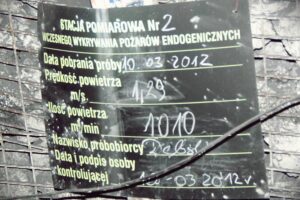 STACJA POMIAROWA Nr 2
WCZESNEGO WYKRYWANIA POŻARÓW ENDOGENICZNYCH
Data pobrania próby 10.03.2012
Prędkość powietrza
m/s 1,29
Ilość powietrza
m³/min 1010
Nazwisko próbobiorcy
Data i podpis osoby
kontrolującej -03-2012r.